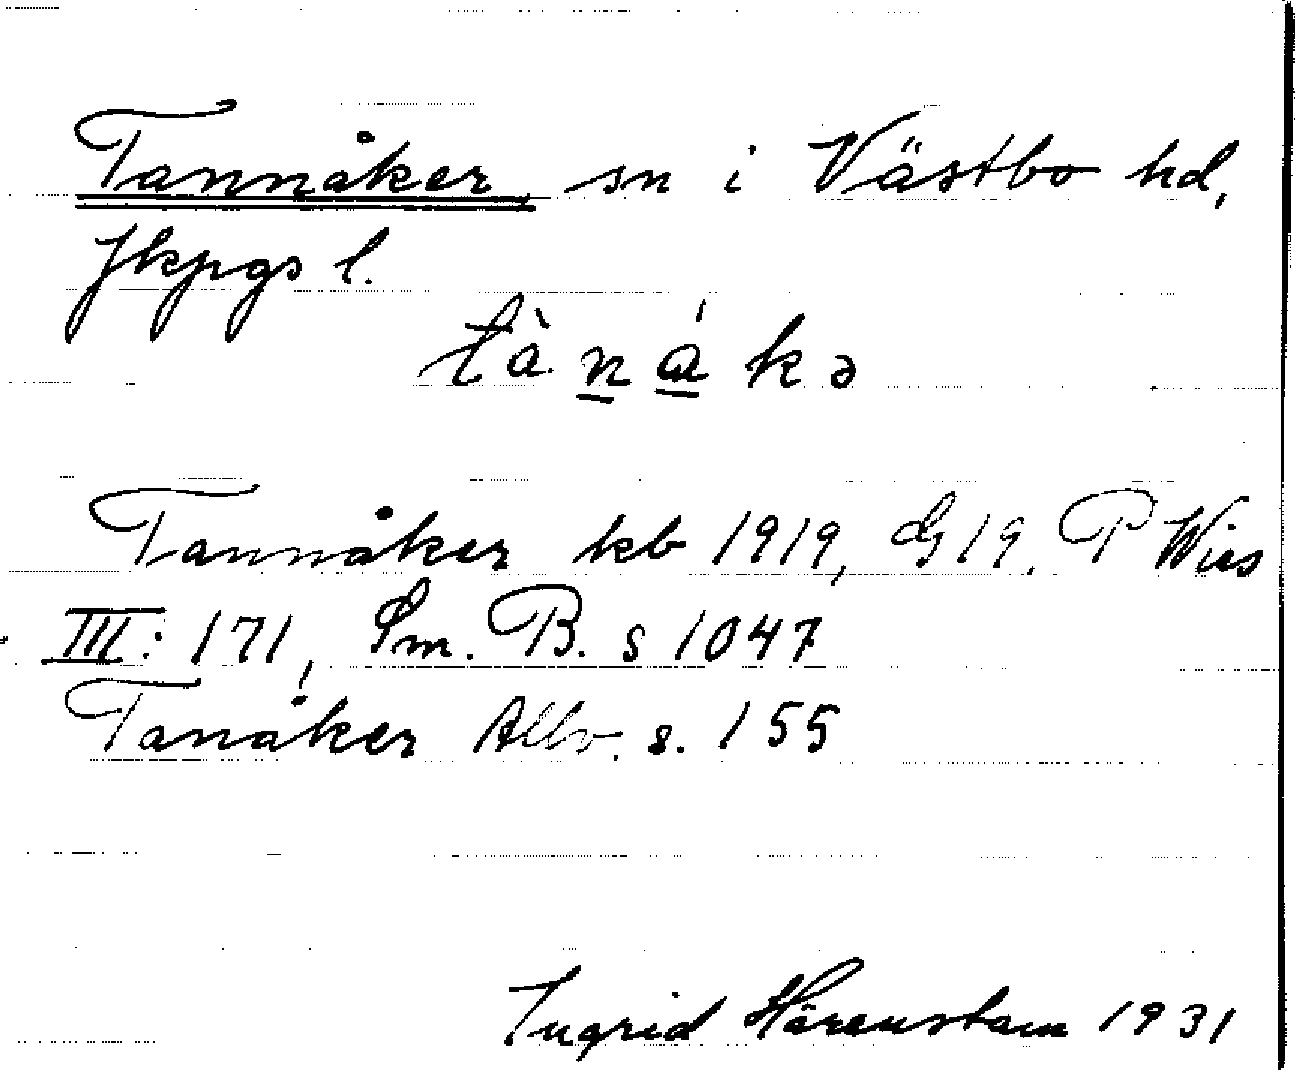 Tannåker, sn i Västbo hd,
Jkpgs l.
tànákə
Tannåker kb 1919, G 19, P Wies
III: 171, Sm. B. s 1047
Tanåker Allv. s. 155
Ingrid Hörenstam 1931